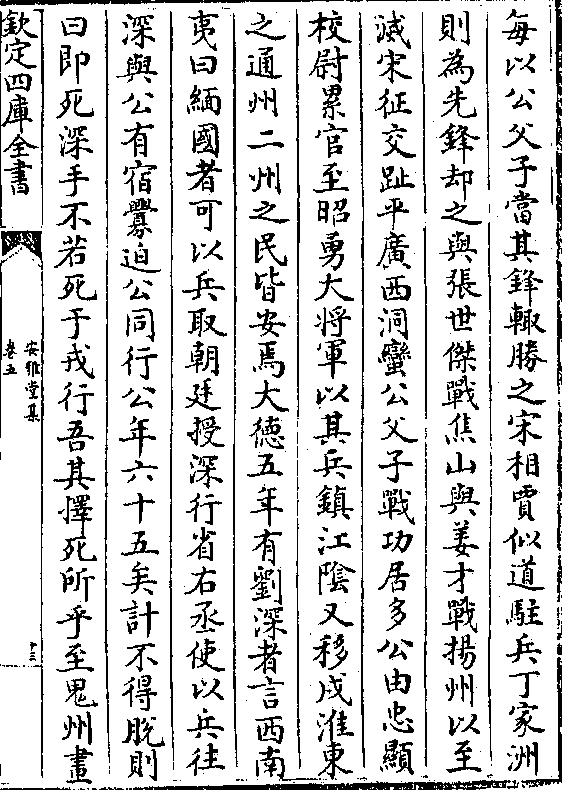 每以公父子當其鋒輙勝之宋相賈似道駐兵丁家洲
則為先鋒却之與張世傑戰焦山與姜才戰揚州以至
滅宋征交趾平廣西洞蠻公父子戰功居多公由忠顯
校尉累官至昭勇大将軍以其兵鎮江隂又移戍淮東
之通州二州之民皆安焉大德五年有劉深者言西南
夷曰緬國者可以兵取朝廷授深行省右丞使以兵往
深與公有宿釁迫公同行公年六十五矣計不得脫則
曰即死深手不若死于戎行吾其擇死所乎至鬼州晝
欽定四庫全書
安雅堂集
卷五
十三